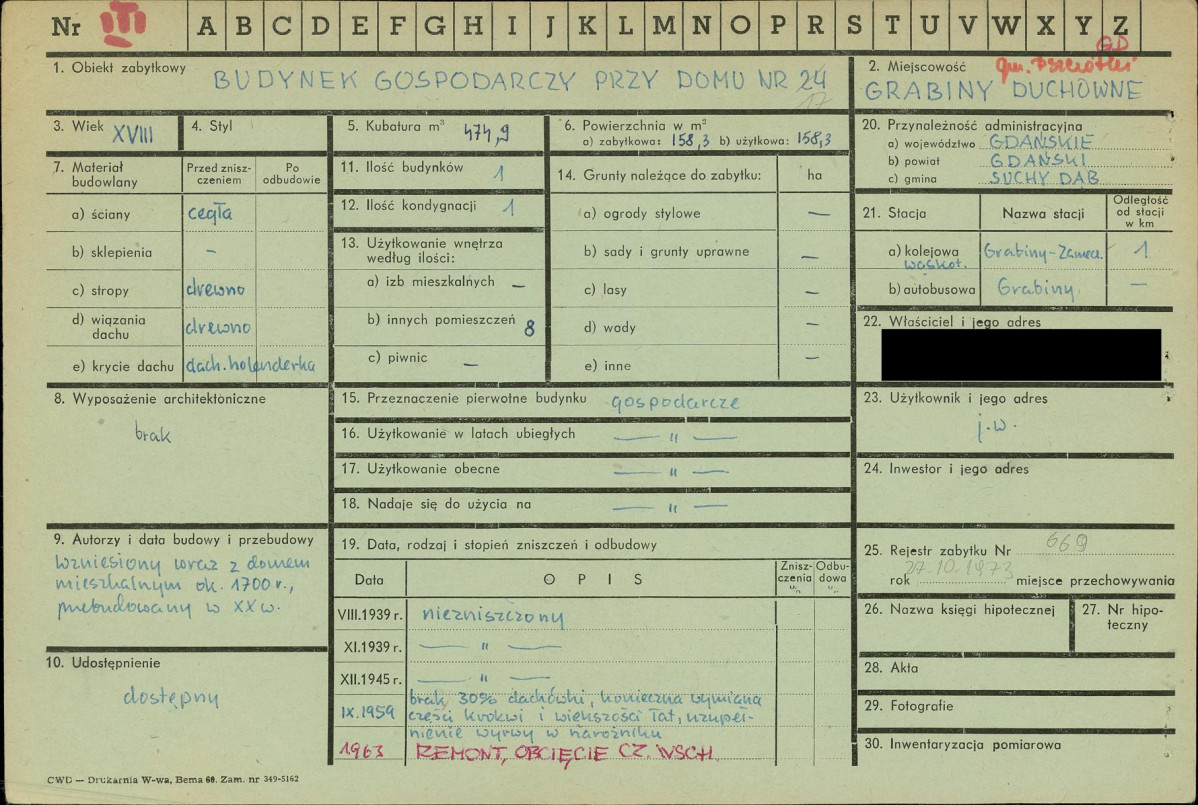 Nr III A B C D E F G H I J K L M N O P R S T U V W X Y Z
1. Obiekt zabytkowy BUDYNEK GOSPODARCZY PRZY DOMU NR 24
17
2. Miejscowość GD
gm.
GRABINY DUCHOWNE
3. Wiek XVIII
4. Styl
5. Kubatura m³ 474,9
6. Powierzchnia w m²
a) zabytkowa: 158,3 b) użytkowa: 158,3
7. Materiał budowlany
Przed znisz-
czeniem
Po
odbudowie
a) ściany cegła
b) sklepienia –
c) stropy drewno
d) wiązania
dachu drewno
e) krycie dachu dach. holenderka
8. Wyposażenie architektoniczne
brak
9. Autorzy i data budowy i przebudowy
Wzniesiony wraz z domem
mieszkalnym ok. 1700 r.,
przebudowany w XX w.
10. Udostępnienie
dostępny
11. Ilość budynków 1
12. Ilość kondygnacji 1
13. Użytkowanie wnętrza
według ilości:
a) izb mieszkalnych –
b) innych pomieszczeń 8
c) piwnic –
14. Grunty należące do zabytku: ha
a) ogrody stylowe –
b) sady i grunty uprawne –
c) lasy –
d) wody –
e) inne –
15. Przeznaczenie pierwotne budynku gospodarcze
16. Użytkowanie w latach ubiegłych — " —
17. Użytkowanie obecne — " —
18. Nadaje się do użycia na — " —
19. Data, rodzaj i stopień zniszczeń i odbudowy
Data
OPIS
Znisz-
czenia
%
Odbu-
dowa
%
VIII.1939 r. niezniszczony
XI.1939 r. — " —
XII.1945 r. — " —
IX.1959 brak 30% dachówki, konieczna wymiana
części krokwi i większości łat, uzupeł-
nienie wyrwy w narożniku
1963 REMONT, OBCIĘCIE CZ. WSCH.
20. Przynależność administracyjna
a) województwo GDAŃSKIE
b) powiat GDAŃSKI
c) gmina SUCHY DĄB
21. Stacja
Nazwa stacji
Odległość
od stacji
w km
a) kolejowa Grabiny-Zamecz. 1
wąskot.
b) autobusowa Grabiny –
22. Właściciel i jego adres
23. Użytkownik i jego adres
j.w.
24. Inwestor i jego adres
25. Rejestr zabytku Nr 669
rok 27.10.1973 miejsce przechowywania
26. Nazwa księgi hipotecznej
27. Nr hipo-
teczny
28. Akta
29. Fotografie
30. Inwentaryzacja pomiarowa
CWD — Drukarnia W-wa, Bema 60. Zam. nr 349-5162